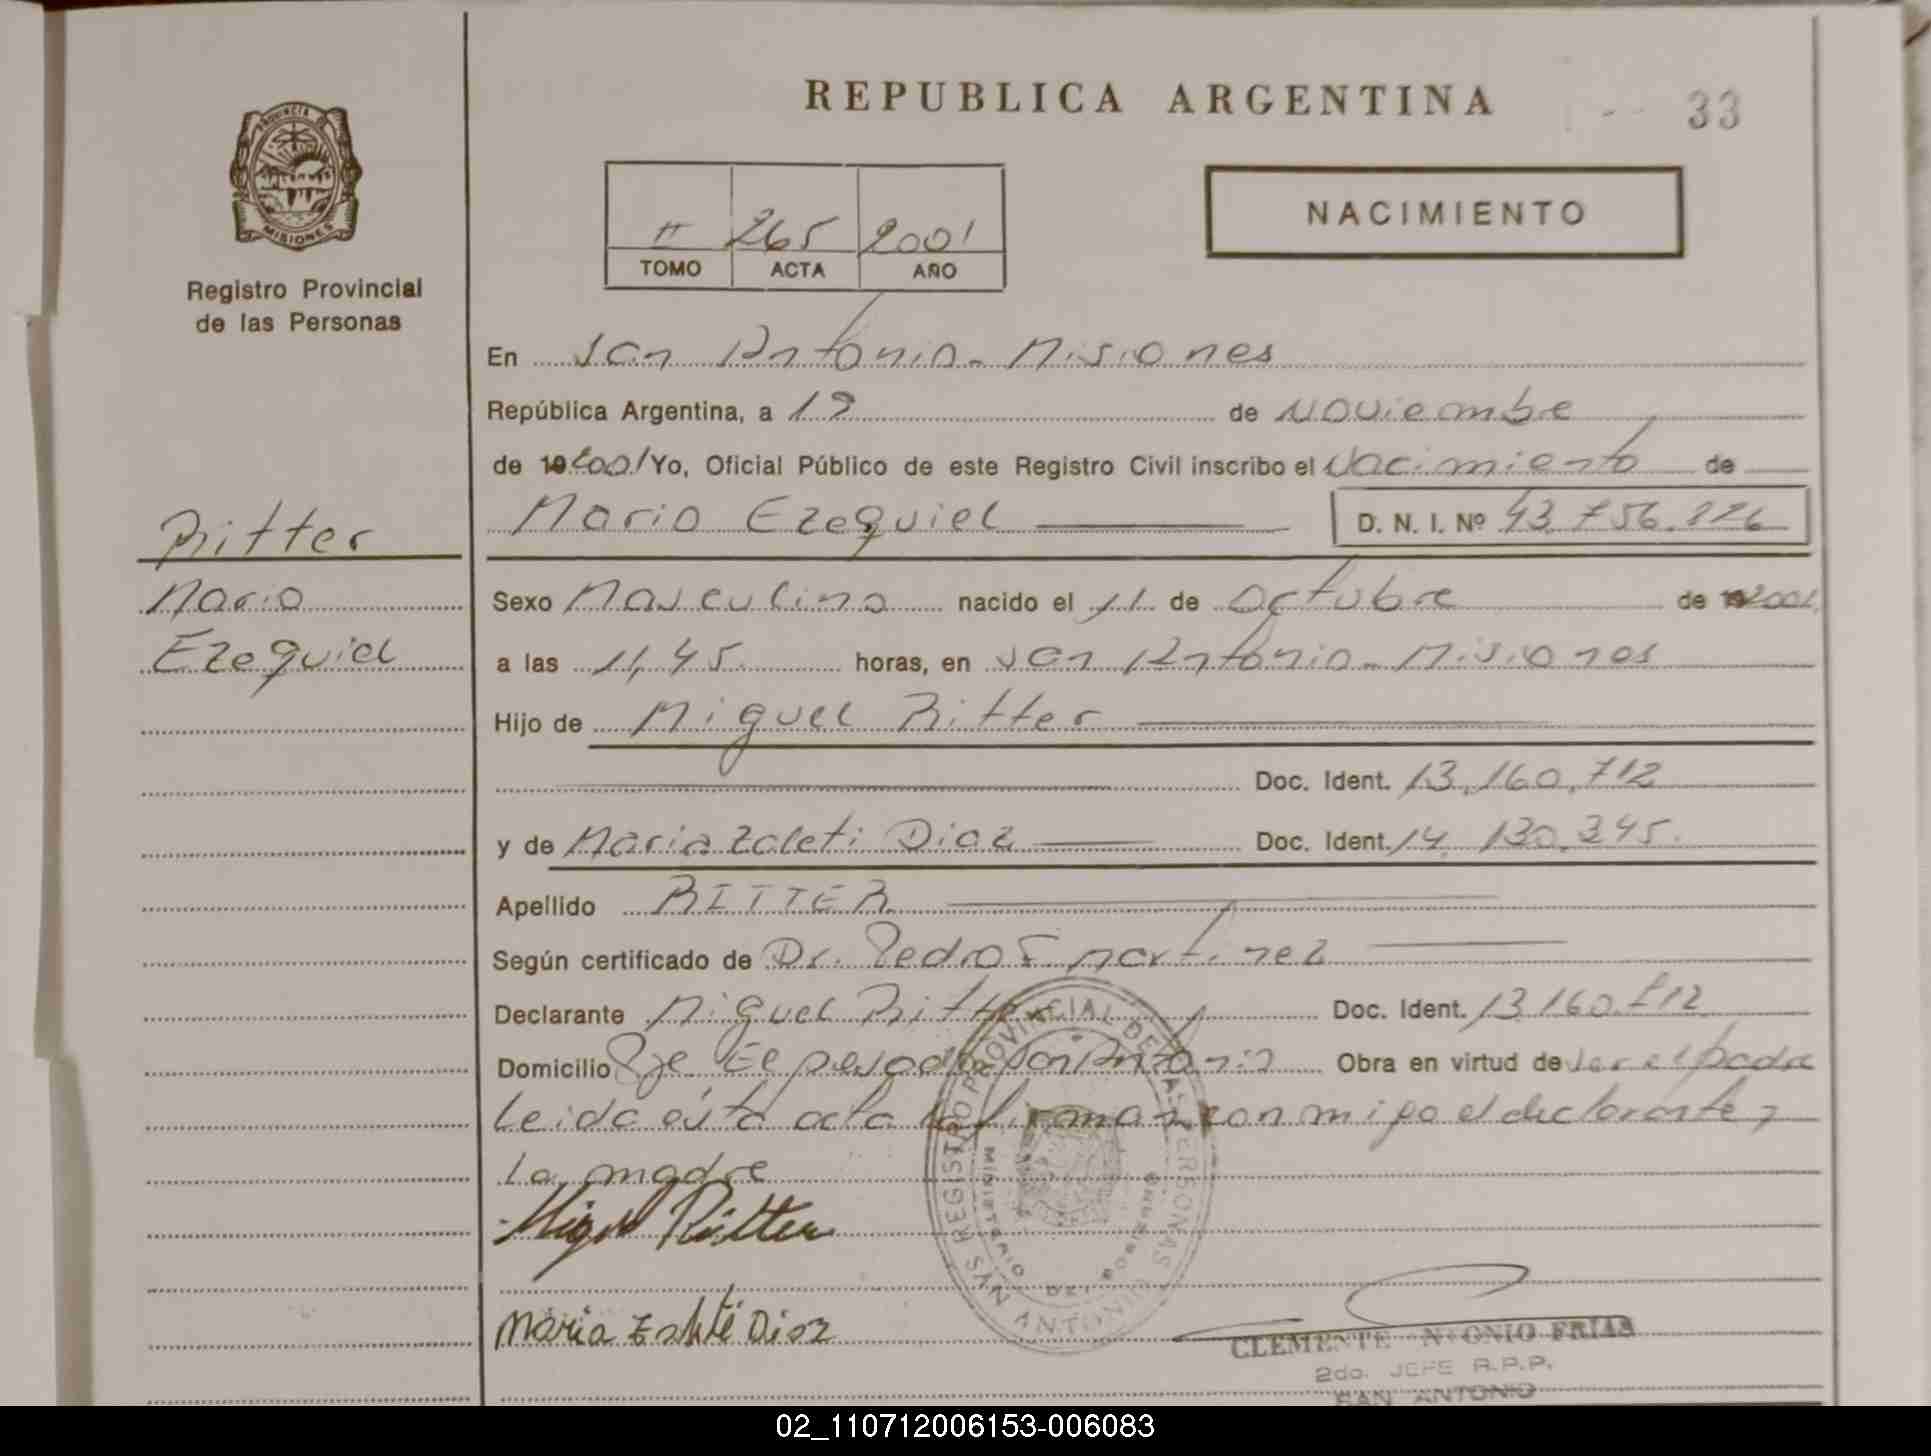 REPUBLICA ARGENTINA
33
PROVINCIA DE
MISIONES
Registro Provincial
de las Personas
NACIMIENTO
II 265 2001
TOMO ACTA AÑO
En San Antonio - Misiones
República Argentina, a 19 de Noviembre
de 192001 Yo, Oficial Público de este Registro Civil inscribo el Nacimiento de
Mario Ezequiel D. N. I. Nº 43.756.226
Ritter
Mario
Ezequiel
Sexo Masculino nacido el 11 de Octubre de 192001
a las 11,45 horas, en San Antonio - Misiones
Hijo de Miguel Ritter
Doc. Ident. 13.160.712
y de Maria Zoleti Dioz Doc. Ident. 14.130.345.
Apellido RITTER
Según certificado de Dr. Pedro E. Martinez
Declarante Miguel Ritter Doc. Ident. 13.160.712
Domicilio Pje El pesado San Antonio Obra en virtud de ser el padre
Leida ésta acta la firman con migo el declarante y
La madre
Miguel Ritter
Maria Dioz
REGISTRO PROVINCIAL DE LAS PERSONAS
MINISTERIO DE GOBIERNO
SAN ANTONIO
CLEMENTE ANTONIO FRIAS
2do. JEFE R.P.P.
SAN ANTONIO
02_110712006153-006083